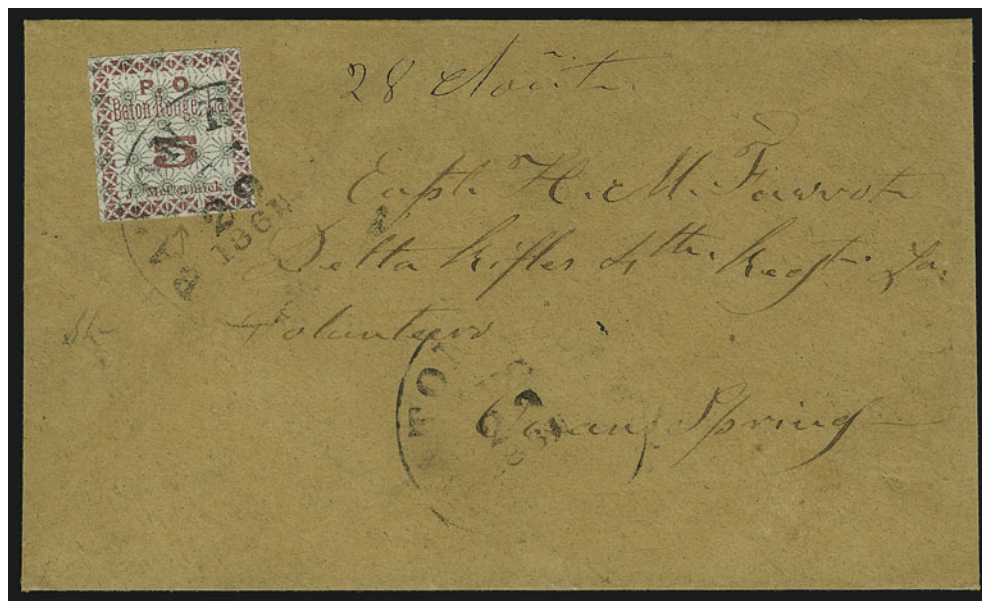 28 Août
P.O.
Baton Rouge, La.
5
J. McCormick.
Capt. H. M. Favrot
Delta Rifles 4th. Regt. La.
Volunteers
Ocean Spring